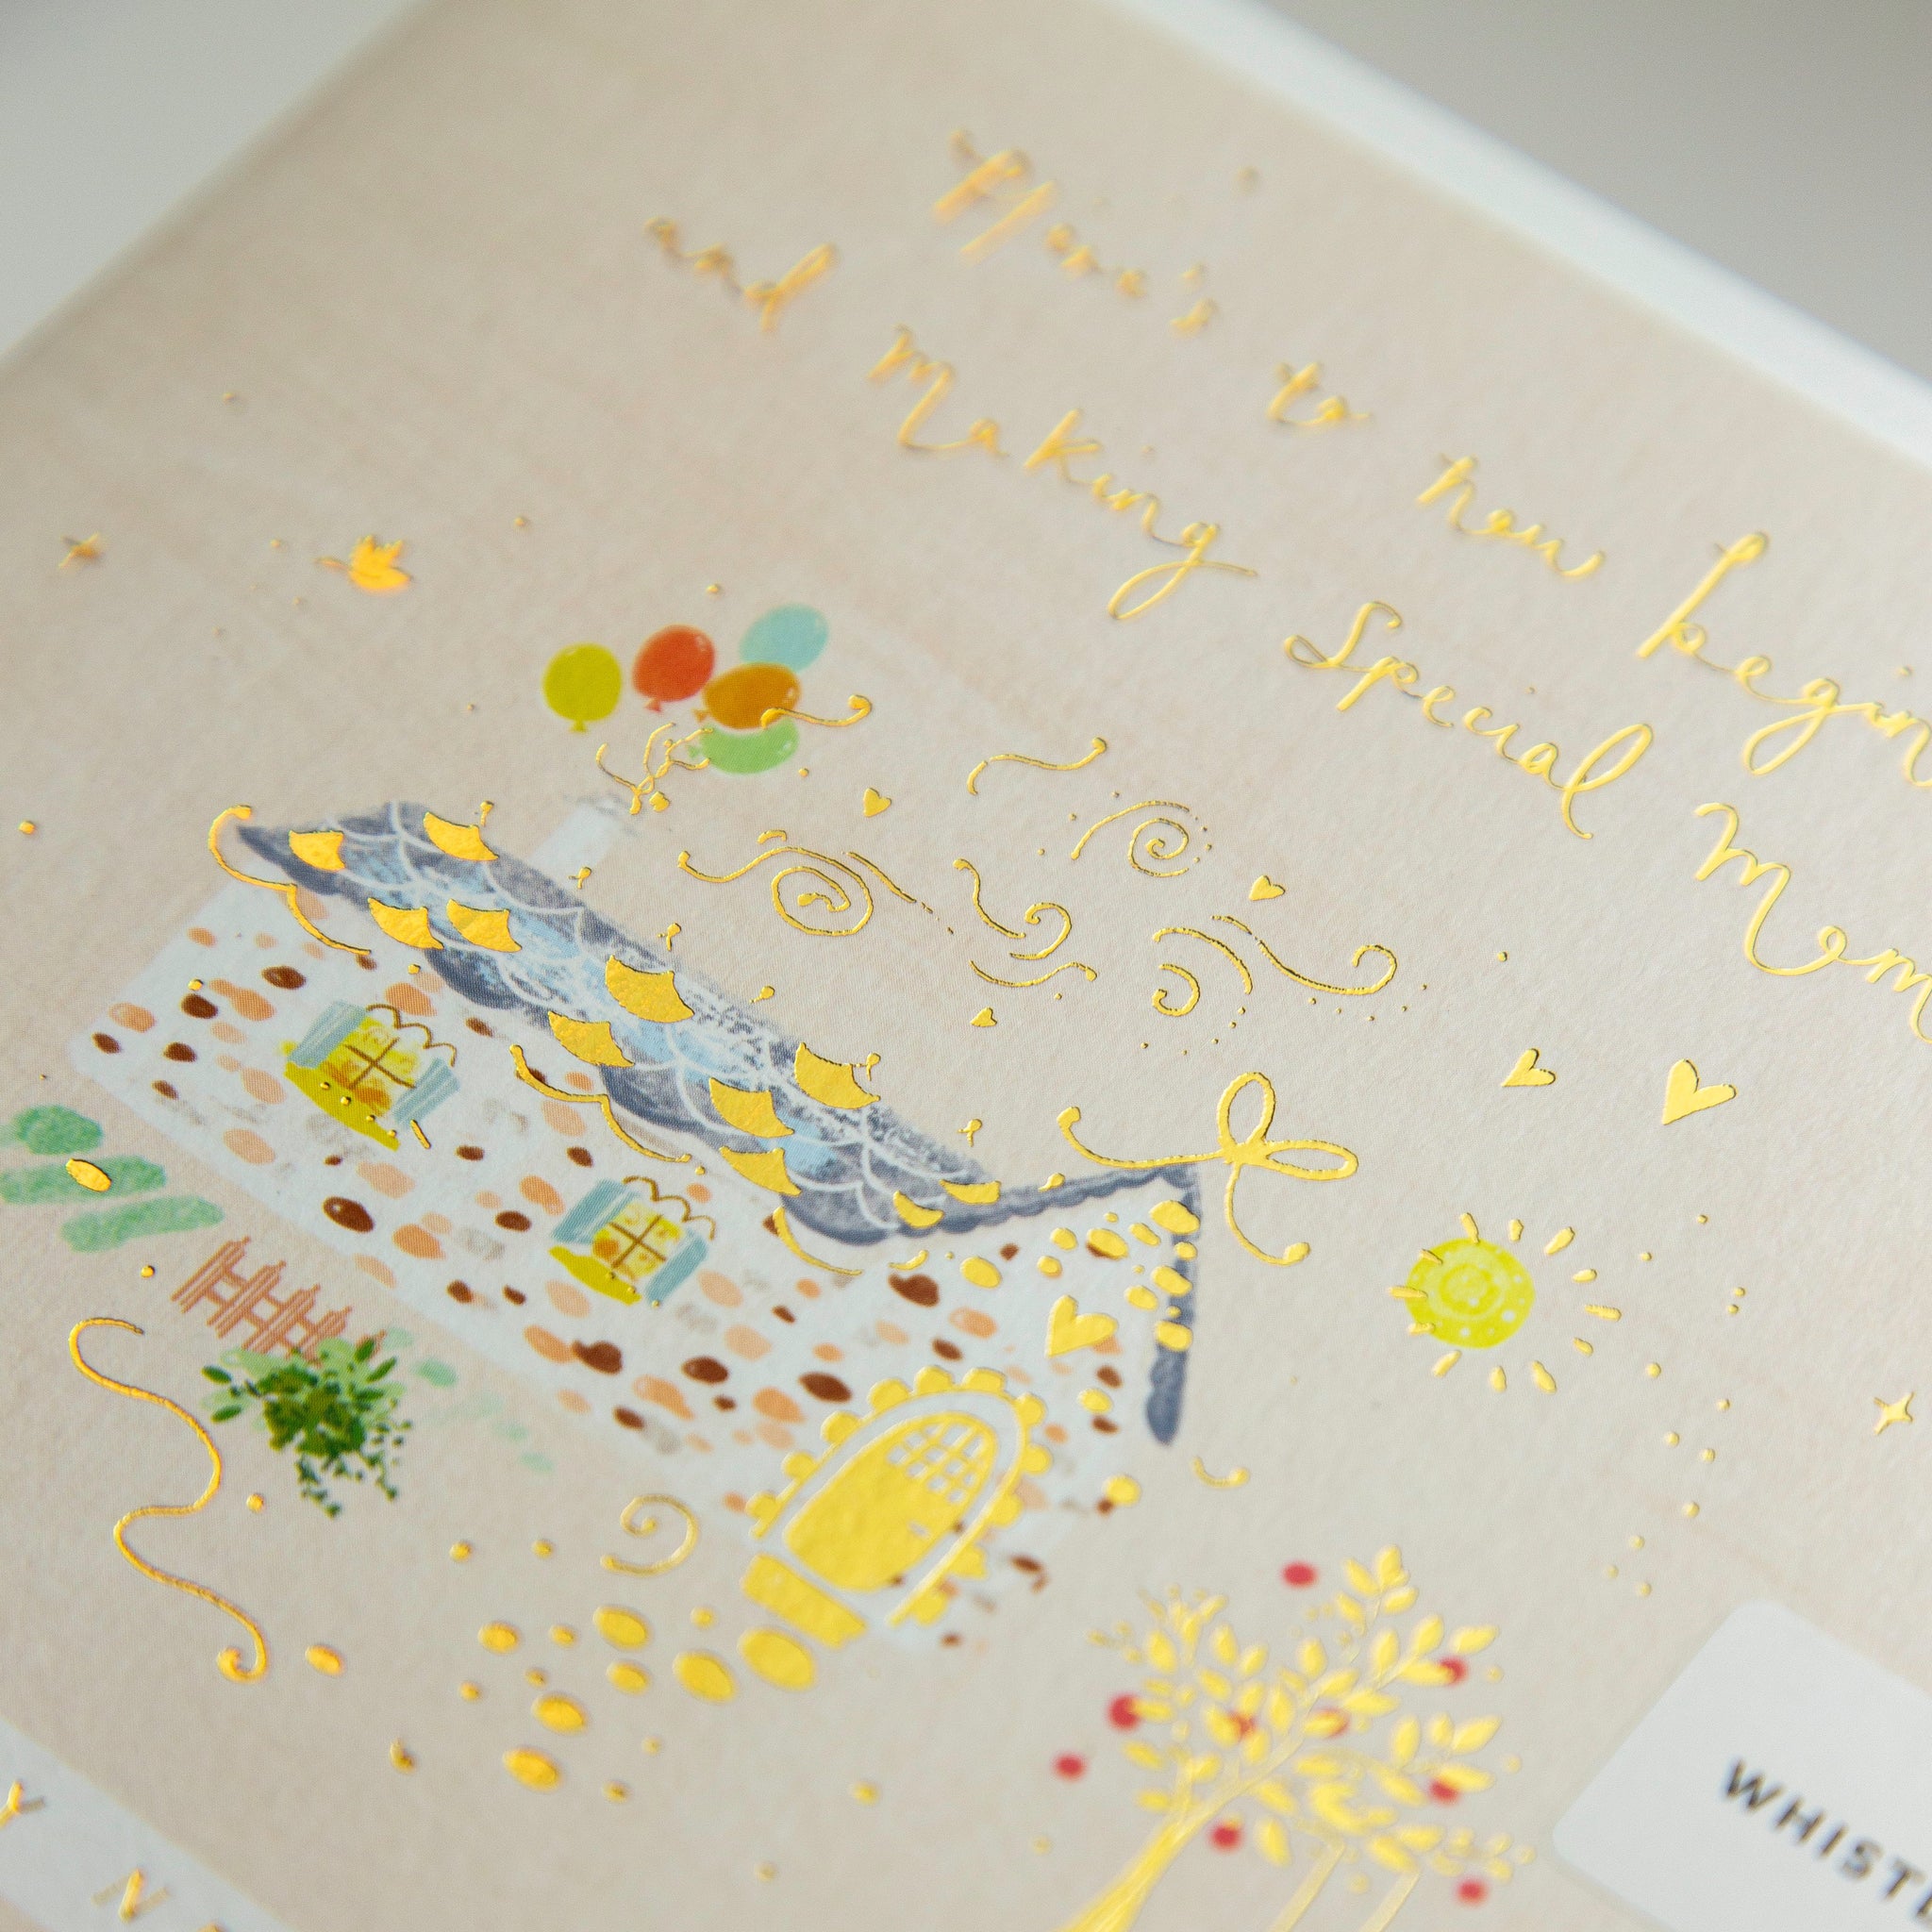 Here's to new begin
and Making Special Mom
Y N
WHIST